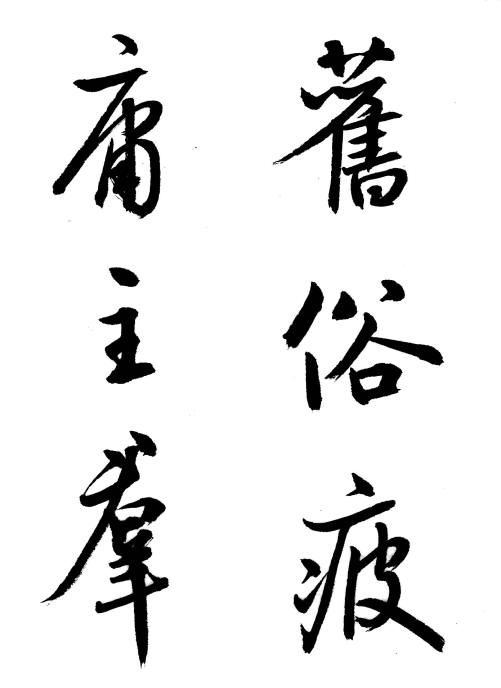 舊俗疲
庸主羣